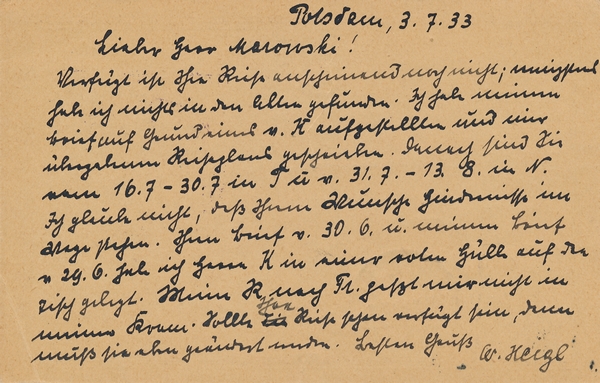 Potsdam, 3.7.33
Lieber Herr Marowski!
Verfügt ist Ihre Reise anscheinend noch nicht; wenigstens
habe ich nichts in den Akten gefunden. Ich habe meinen
Brief auf Grund eines v. K aufgestellten und mir
übergebenen Reiseplans geschrieben. Danach sind Sie
vom 16.7 - 30.7 in T u v. 31.7. - 13. 8. in N.
Ich glaube nicht, daß Ihrem Wunsche Hindernisse im
Wege stehen. Ihren Brief v. 30. 6. u. meinen Brief
v 29. 6. habe ich Herrn K in einer roten Hülle auf den
Tisch gelegt. Meine R nach Tr. paßt mir nicht in
meinen Kram. Sollte Ihre Reise schon verfügt sein, dann
muß sie eben geändert werden. Besten Gruß W. Heigl